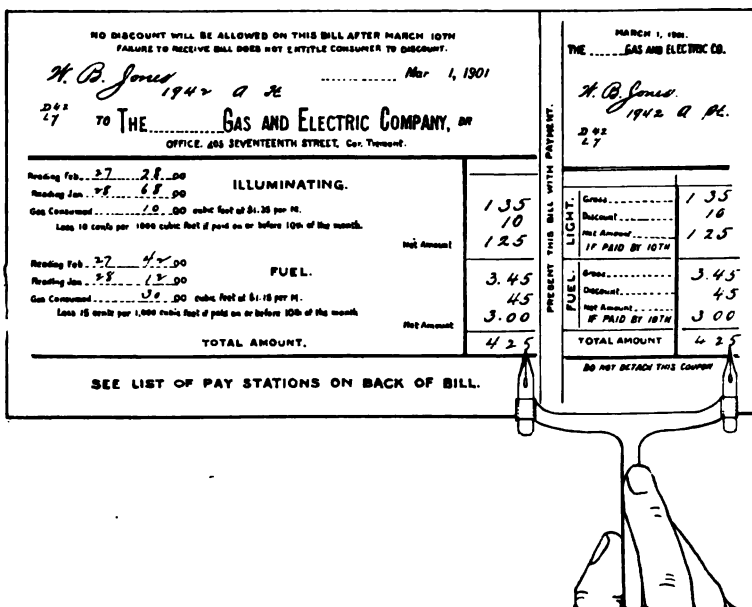 NO DISCOUNT WILL BE ALLOWED ON THIS BILL AFTER MARCH 10TH
FAILURE TO RECEIVE BILL DOES NOT ENTITLE CONSUMER TO DISCOUNT.
W. B. Jones
1942 A St
Mar 1, 1901
D42
L7
TO THE ........ GAS AND ELECTRIC COMPANY, DR
OFFICE. 405 SEVENTEENTH STREET, Cor. Tremont.
Reading Feb. 27 28 00
Reading Jan 28 68 00
ILLUMINATING.
Gas Consumed 10 00 cubic feet at $1.35 per M.
Less 10 cents per 1000 cubic feet if paid on or before 10th of the month.
Net Amount
1 35
10
1 25
Reading Feb 27 42 00
Reading Jan 28 12 00
FUEL.
Gas Consumed 30 00 cubic feet at $1.15 per M.
Less 15 cents per 1,000 cubic feet if paid on or before 10th of the month
Net Amount
3.45
45
3.00
TOTAL AMOUNT. 4 25
SEE LIST OF PAY STATIONS ON BACK OF BILL.
PRESENT THIS BILL WITH PAYMENT.
MARCH 1, 1901.
THE ........ GAS AND ELECTRIC CO.
W. B. Jones.
1942 A St.
D42
L7
LIGHT.
Gross 1 35
Discount 10
Net Amount 1 25
IF PAID BY 10TH
FUEL.
Gross 3.45
Discount 45
Net Amount 3 00
IF PAID BY 10TH
TOTAL AMOUNT 4 25
DO NOT DETACH THIS COUPON